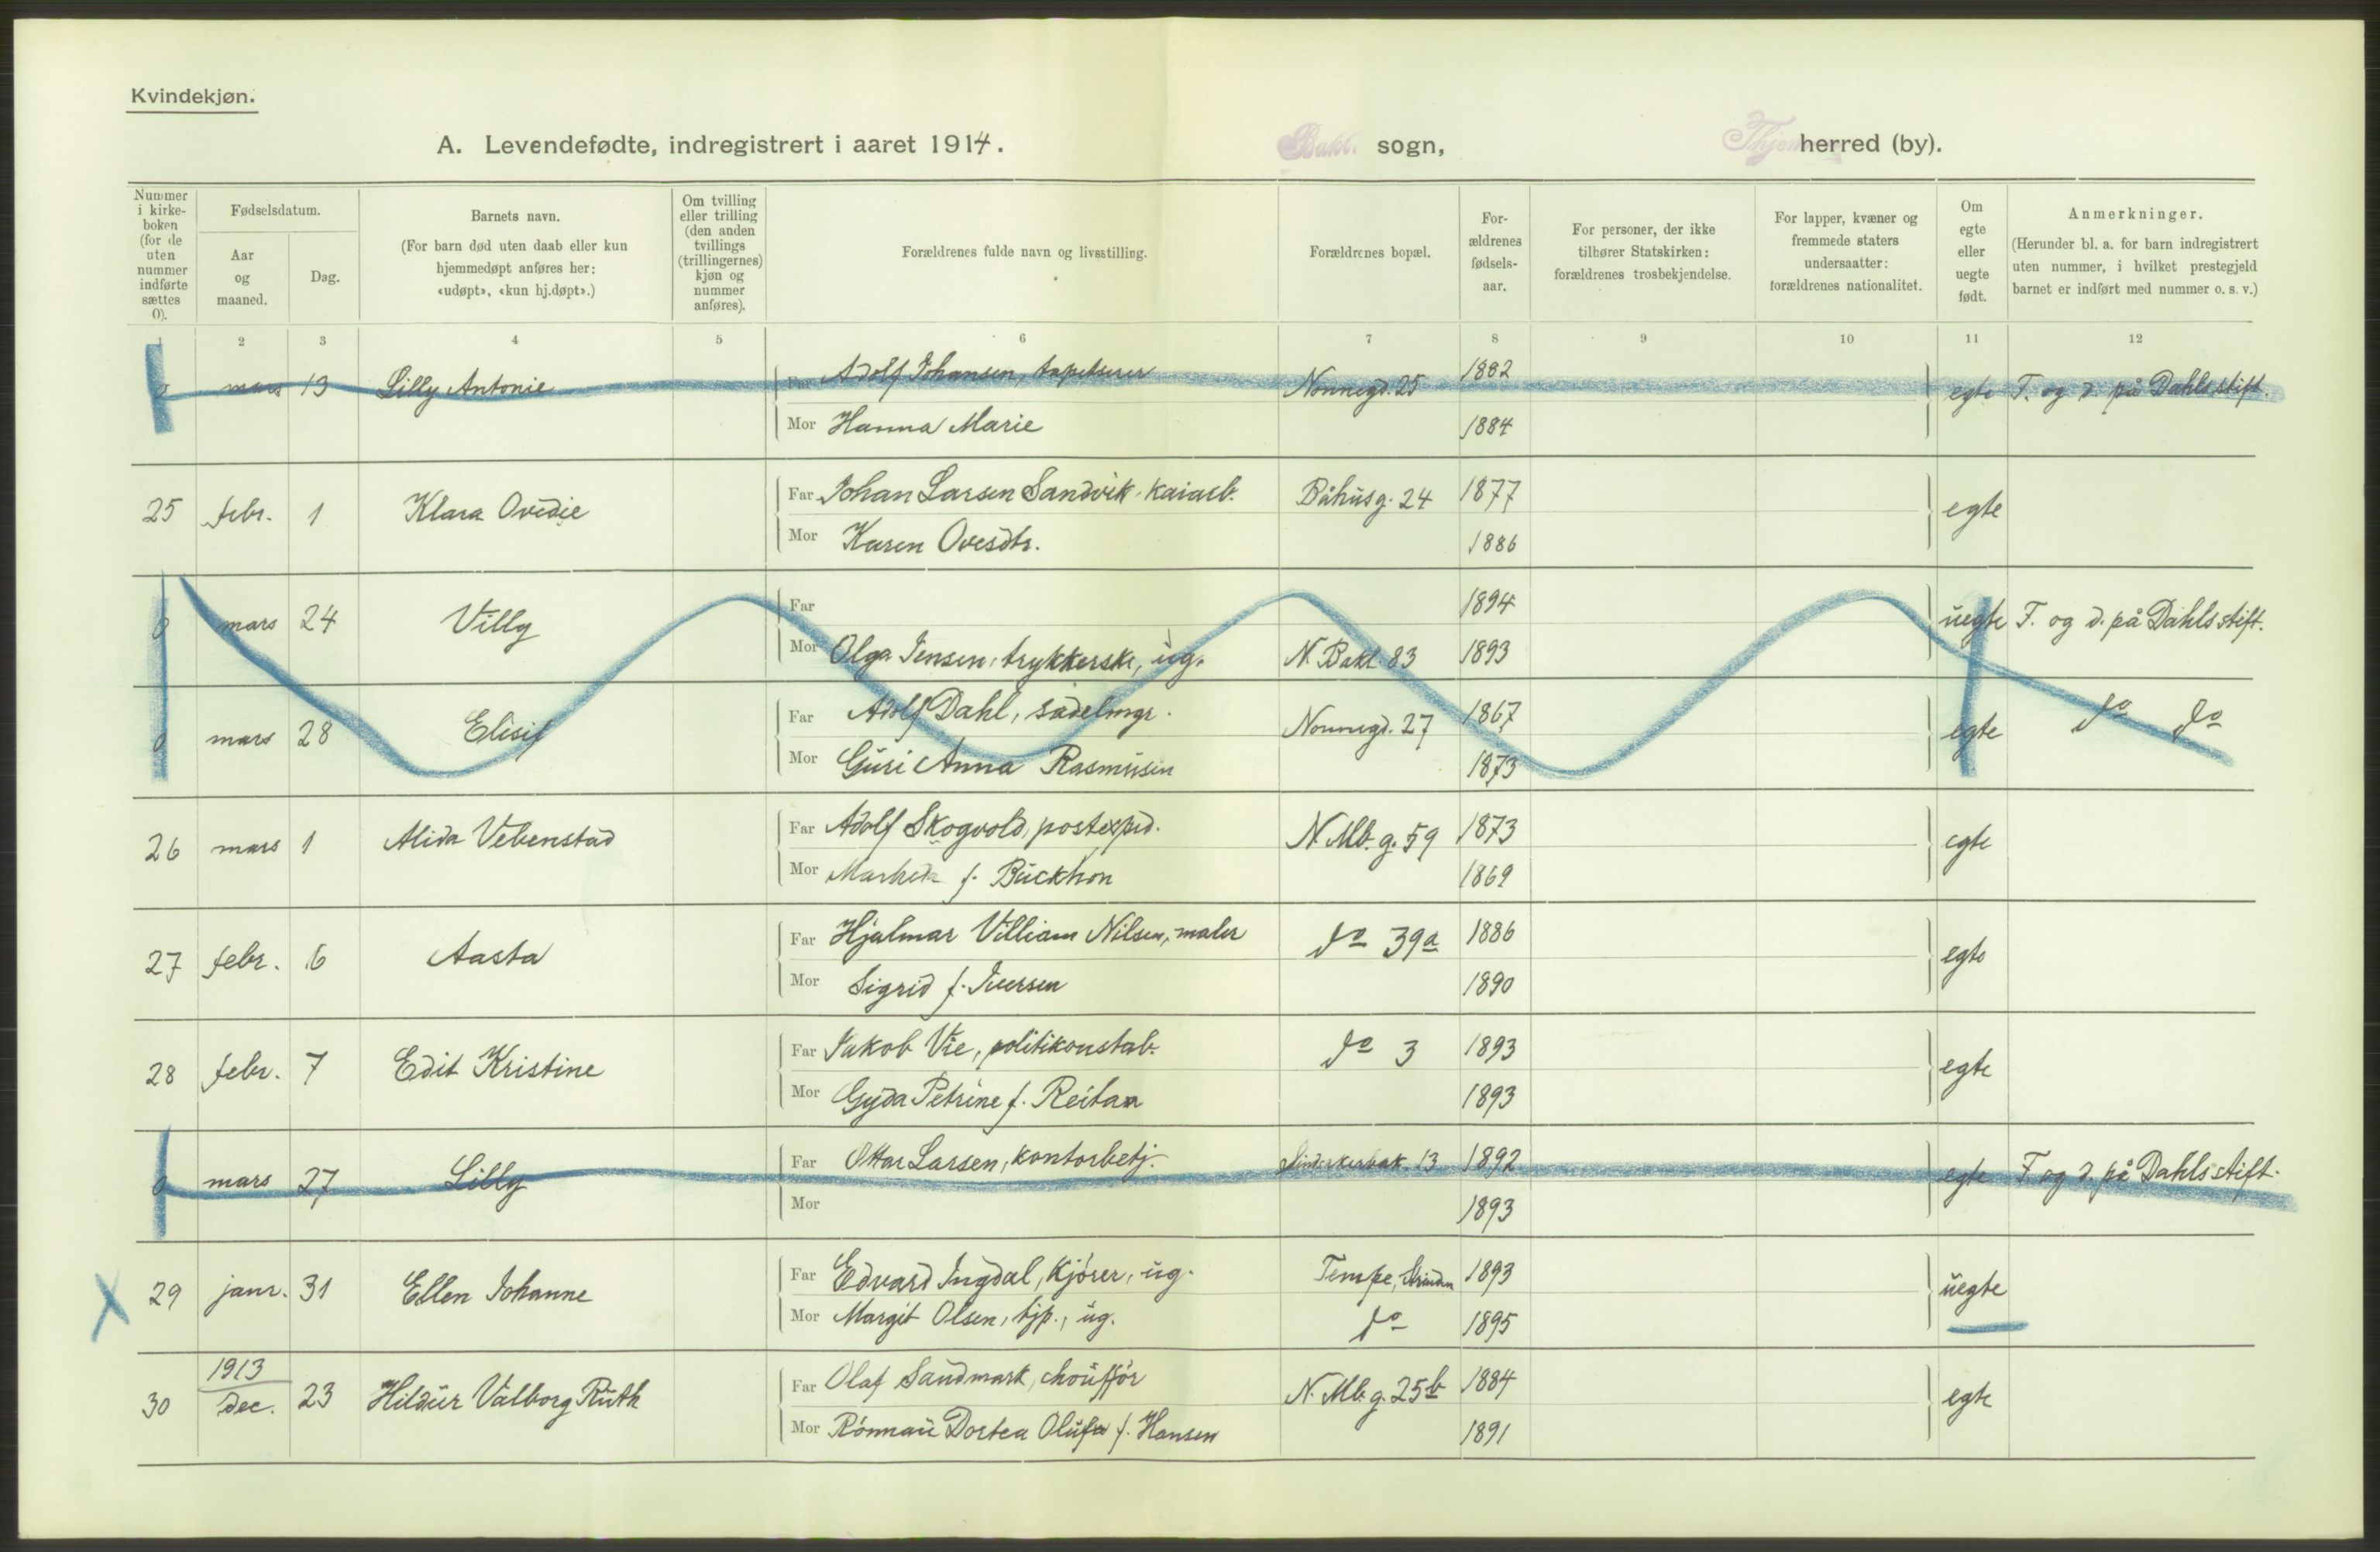 Kvindekjøn.
A. Levendefødte, indregistrert i aaret 1914. Bakl. sogn, herred (by).
Nummer i kirke-boken (for de uten nummer indførte sættes 0).
Fødselsdatum.
Aar og maaned.
Dag.
Barnets navn.
(For barn død uten daab eller kun hjemmedøpt anføres her: «udøpt», «kun hj.døpt».)
Om tvilling eller trilling (den anden tvillings (trillingernes) kjøn og nummer anføres).
Forældrenes fulde navn og livsstilling.
Forældrenes bopæl.
For-ældrenes fødsels-aar.
For personer, der ikke tilhører Statskirken: forældrenes trosbekjendelse.
For lapper, kvæner og fremmede staters undersaatter: forældrenes nationalitet.
Om egte eller uegte født.
Anmerkninger.
(Herunder bl. a. for barn indregistrert uten nummer, i hvilket prestegjeld barnet er indført med nummer o. s. v.)
1 2 3 4 5 6 7 8 9 10 11 12
0 mars 13 Lilly Antonie Far Adolf Johansen, tapetserer Nonnegd. 25 1882 egte F. og d. på Dahls stift.
Mor Hanna Marie 1884
25 febr. 1 Klara Ovidie Far Johan Larsen Sandvik, kaiarb. Båhusg. 24 1877 egte
Mor Karen Ovesdtr. 1886
0 mars 24 Villy Far 1894 uegte F. og d. på Dahls stift.
Mor Olga Jensen, trykkerske, ug. N. Bakl. 83 1893
0 mars 28 Elisif Far Adolf Dahl, sadelmgr. Nonnegd. 27 1867 egte do do
Mor Guri Anna Rasmusen 1873
26 mars 1 Alida Vebenstad Far Adolf Skogvold, postexped. N. Mb. g. 59 1873 egte
Mor f. Buckhon 1869
27 febr. 6 Aasta Far Hjalmar Villiam Nilsen, maler do 39a 1886 egte
Mor Sigrid f. Iversen 1890
28 febr. 7 Edit Kristine Far Jakob Vie, politikonstab. do 3 1893 egte
Mor Gyda Petrine f. Reitan 1893
0 mars 27 Lilly Far Ottar Larsen, kontorbetj. 13 1892 egte F. og d. på Dahls stift.
Mor 1893
X 29 janr. 31 Ellen Johanne Far Edvard Ingdal, kjører, ug. Tempe, Strinden 1893 uegte
Mor Margit Olsen, tjp., ug. do 1895
30 1913 dec. 23 Hildur Valborg Ruth Far Olaf Sandmark, chouffør N. Mb. g. 25b 1884 egte
Mor Rønnau Dortea Olufa f. Hansen 1891